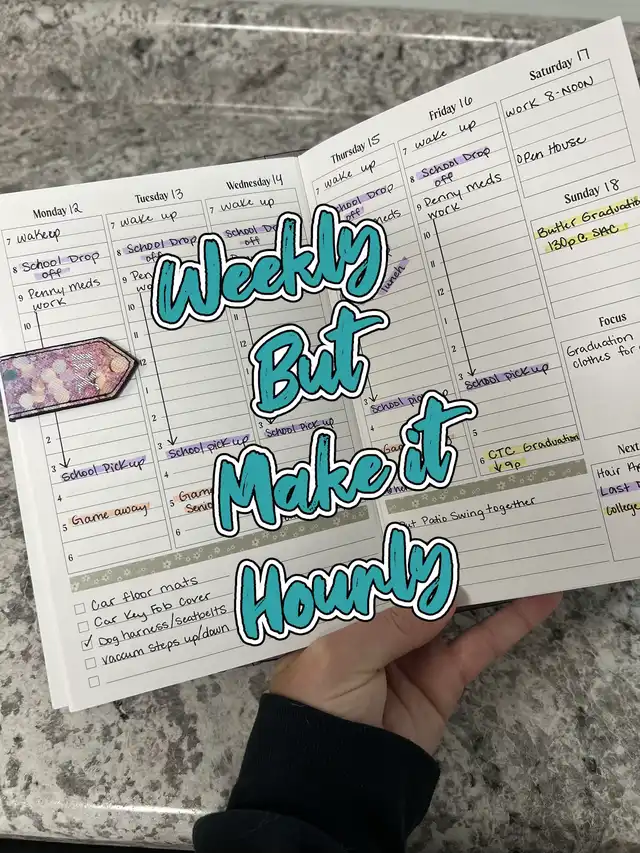 Monday 12
7 wakeup
8 School Drop
off
9 Penny meds
work
10
2
3 School Pick up
4
5 Game away
6
Tuesday 13
7 wake up
8 School Drop
off
9
work
10
11
12
1
2
3 School pick up
4
5
6
Wednesday 14
7 wake up
3 School pick up
Thursday 15
7 wake up
School Drop
off
meds
lunch
3
4
Friday 16
7 wake up
8 School Drop
off
9 Penny meds
work
10
11
12
1
2
3 School pick up
4
5
6 CTC Graduation
↓ 9p
Saturday 17
work 8-NOON
Open House
Sunday 18
Butler Graduation
130p @ SAC
Focus
Graduation
clothes for
Next
Hair
Last
college
Car floor mats
Car Key Fob Cover
✓ Dog harness/seatbelts
vaccum steps up/down
Patio Swing together
Weekly
But
Make it
Hourly